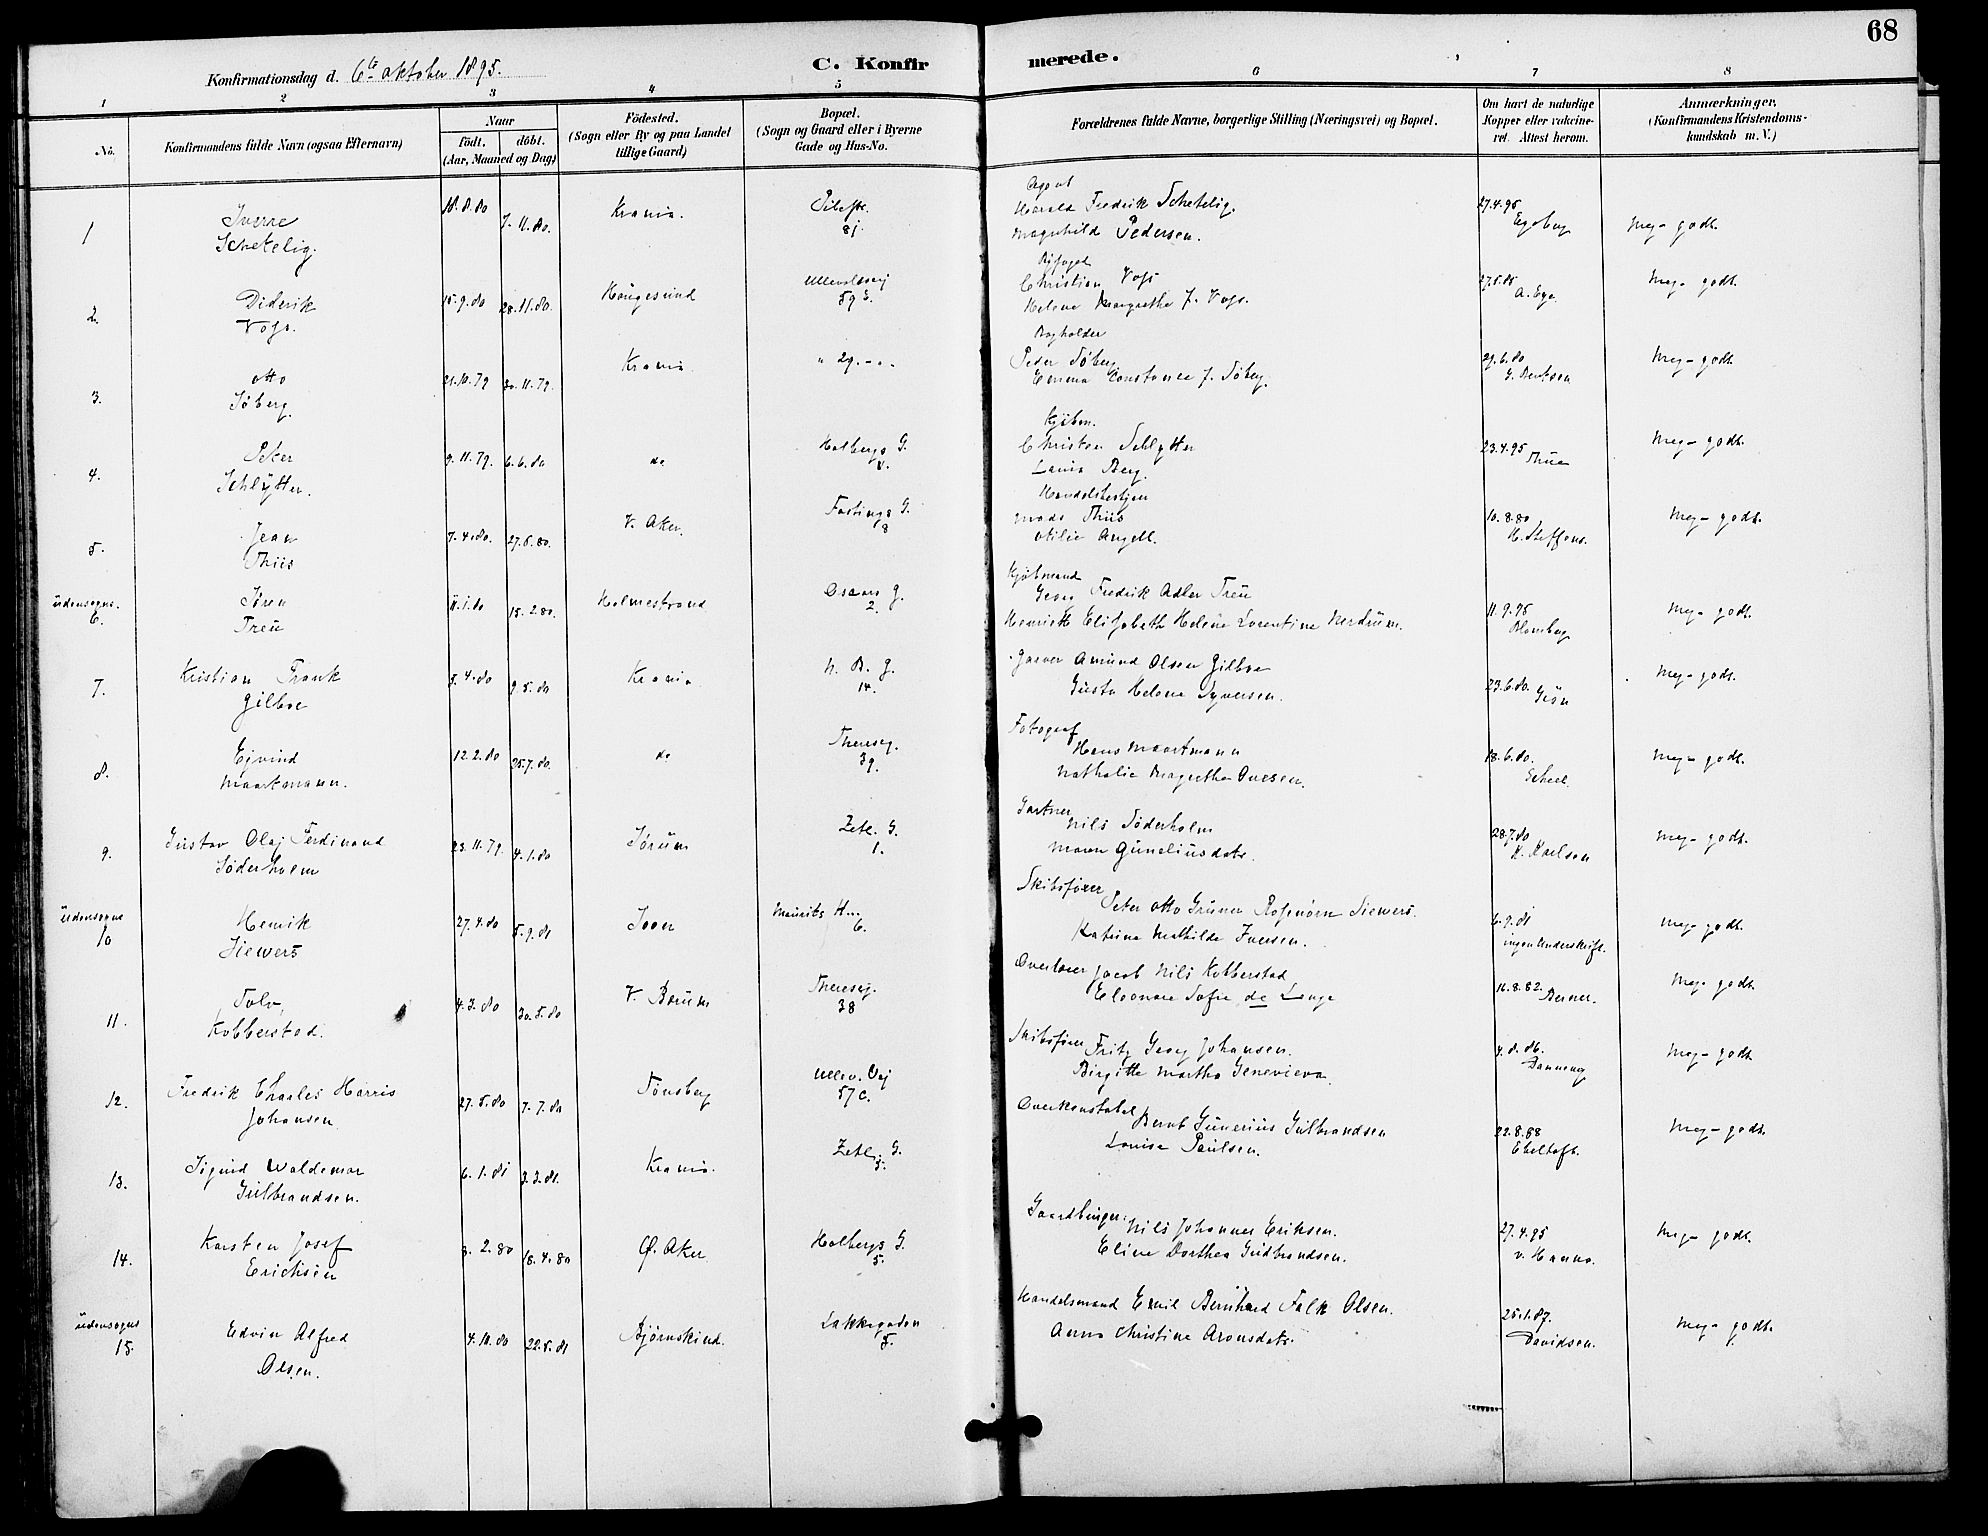 68
Konfirmationsdag d. 6te oktober 1895.
C. Konfirmerede.
1 2 3 4 5 6 7 8
No.
Konfirmandens fulde Navn (ogsaa Efternavn)
Naar
födt. döbt.
(Aar, Maaned og Dag)
Födested.
(Sogn eller By og paa Landet
tillige Gaard)
Bopæl.
(Sogn og Gaard eller i Byerne
Gade og Hus-No.
Forældrenes fulde Navne, borgerlige Stilling (Næringsvei) og Bopæl.
Om havt de naturlige
Kopper eller vakcine-
ret. Attest herom.
Anmærkninger,
(Konfirmandens Kristendoms-
kundskab m. V.)
1 Sverre Schetelig. 18.8.80 7.11.80. Krania. Pilestr. 81.
Agent
Harald Fredrik Schetelig.
Magnhild Pedersen.
27.4.95 Egeberg Meg. godt.
2. Diderik Vogt. 15.9.80 28.11.80. Haugesund Ullevålsvej 59
Byfoged
Christian Vogt
Helene Margrethe f. Vogt.
A. Ege Meg. godt.
3. Otto Söberg. 21.10.79 30.11.79. Krania. " 29.
Bogholder
Peder Söberg
Emma Constance f. Söberg.
29.6.80 Bentsen Meg. godt.
4. Peter Schlytter. 9.11.79. 6.6.80 do Holbergs G.
Kjöbm.
Christen Schlytter
Berg.
23.4.95 Thue Meg. godt.
5. Jean Thiis 7.4.80. 27.6.80. V. Aker. Fastings G. 8
Mads Thiis
Otilie Angell.
10.8.80 H. Steffens. Meg. godt.
udensogns. 6. Sören Treu 11.1.80 15.2.80. Holmestrand Oscars G. 2.
Kjöbmand
Georg Fredrik Adler Treu
Henriette Elisabeth Helene Lorentine Nerdrum.
11.9.95 Blomberg Meg. godt.
7. Kristian Frank Gilboe 5.4.80 9.5.80 Krania N. B. G. 14.
Amund Olsen Gilboe
Helene Syversen.
23.6.80. Meg. godt.
8. Ejvind Maartmann. 12.2.80 25.7.80. do Thereseg. 39.
Fotograf
Hans Maartmann
Nathalie Magrethe Ovesen.
18.6.80. Scheel. Meg. godt.
9. Gustav Olaj Ferdinand Söderholm 23.11.79. 4.1.80 Sörum Zetl. G. 1.
Gartner
Nils Söderholm
Maren Guneliusdatr.
28.7.80 K. Karlsen Meg. godt.
udensogns 10 Henrik Siewers 27.4.80 5.9.81 Maurits H... 6.
Skibsförer
Peter Otto Grüner Rosenörn Siewers.
Katrine Mathilde Iversen.
6.9.81 ingen Underskrift. Meg. godt.
11. Tolv, Kobberstad. 4.3.80 30.5.80 V. Bærum Thereseg. 38
Overlærer Jacob Nils Kobberstad
Eleonore Sofie de Lange
16.8.82. Berner. Meg. godt
12. Fredrik Charles Harris Johansen. 27.5.80 7.7.80 Tönsberg Ullev. Vej 57c.
Skibsförer Fritz Georg Johansen.
Birgitte Martha Genevieva.
4.8.86. Meg. godt
13. Sigurd Waldemar Gulbrandsen. 6.1.81 3.3.81. Krania. Zetl. G. 5.
Overkonstabel Bernt Gunerius Gulbrandsen
Louise Paulsen.
22.8.88 Ebeltoft. Meg. godt.
14. Karsten Josef Erichsen 3.2.80 18.4.80 Ö. Aker Holbergs G. 5.
Gaardbruger: Nils Johannes Eriksen.
Eline Dorthea Gulbrandsen.
27.4.95 v. Hanno. Meg. godt.
udensogns 15. Edvin Alfred Olsen. 4.10.80 22.5.81 Björnskind. Lakkegaden 5.
Handelsmand Emil Bernhard Falk Olsen.
Anna Christine Aronsdatr.
25.1.87. Davidsen. Meg. godt.